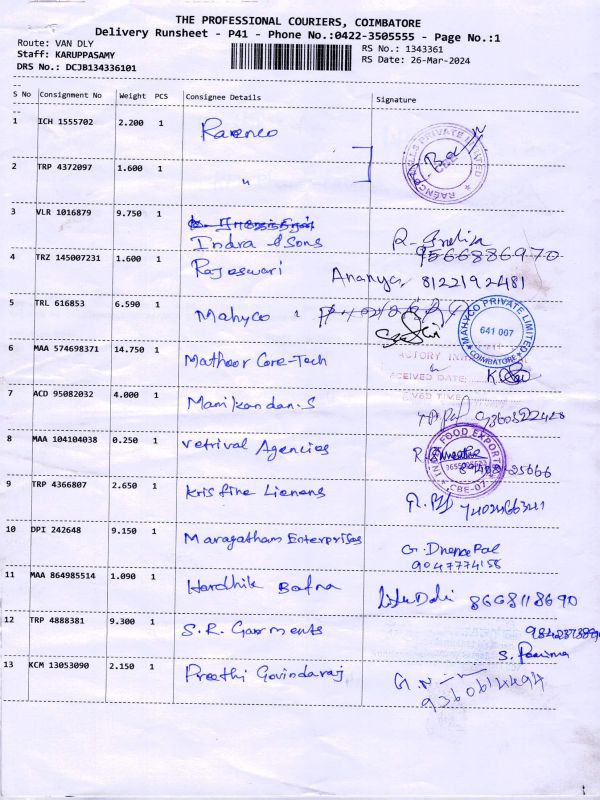 THE PROFESSIONAL COURIERS, COIMBATORE
Delivery Runsheet - P41 - Phone No.:0422-3505555 - Page No.:1
Route: VAN DLY
RS No.: 1343361
Staff: KARUPPASAMY
RS Date: 26-Mar-2024
DRS No.: DCJB134336101
S No Consignment No Weight PCS Consignee Details Signature
1 ICH 1555702 2.200 1
2 TRP 4372097 1.600 1 "
3 VLR 1016879 9.750 1
Indra & Sons
9566886970
4 TRZ 145007231 1.600 1 Rajeswari Ananya 8122192481
5 TRL 616853 6.590 1 Mahyco
MAHYCO PRIVATE LIMITED
641 007
COIMBATORE
6 MAA 574698371 14.750 1 Mathoor Core-Tech
7 ACD 95082032 4.000 1 Manikandan.S
8 MAA 104104038 0.250 1 Vetrival Agencies
FOOD EXPORT
CBE-07
9 TRP 4366807 2.650 1 Kristine Lienens
10 DPI 242648 9.150 1 Maragatham Enterprises
G. Dhenapal
9047774158
11 MAA 864985514 1.090 1 Hardhik Bafna 8668118690
12 TRP 4888381 9.300 1 S.R. Garments
13 KCM 13053090 2.150 1 Preethi Govindaraj
9360614494